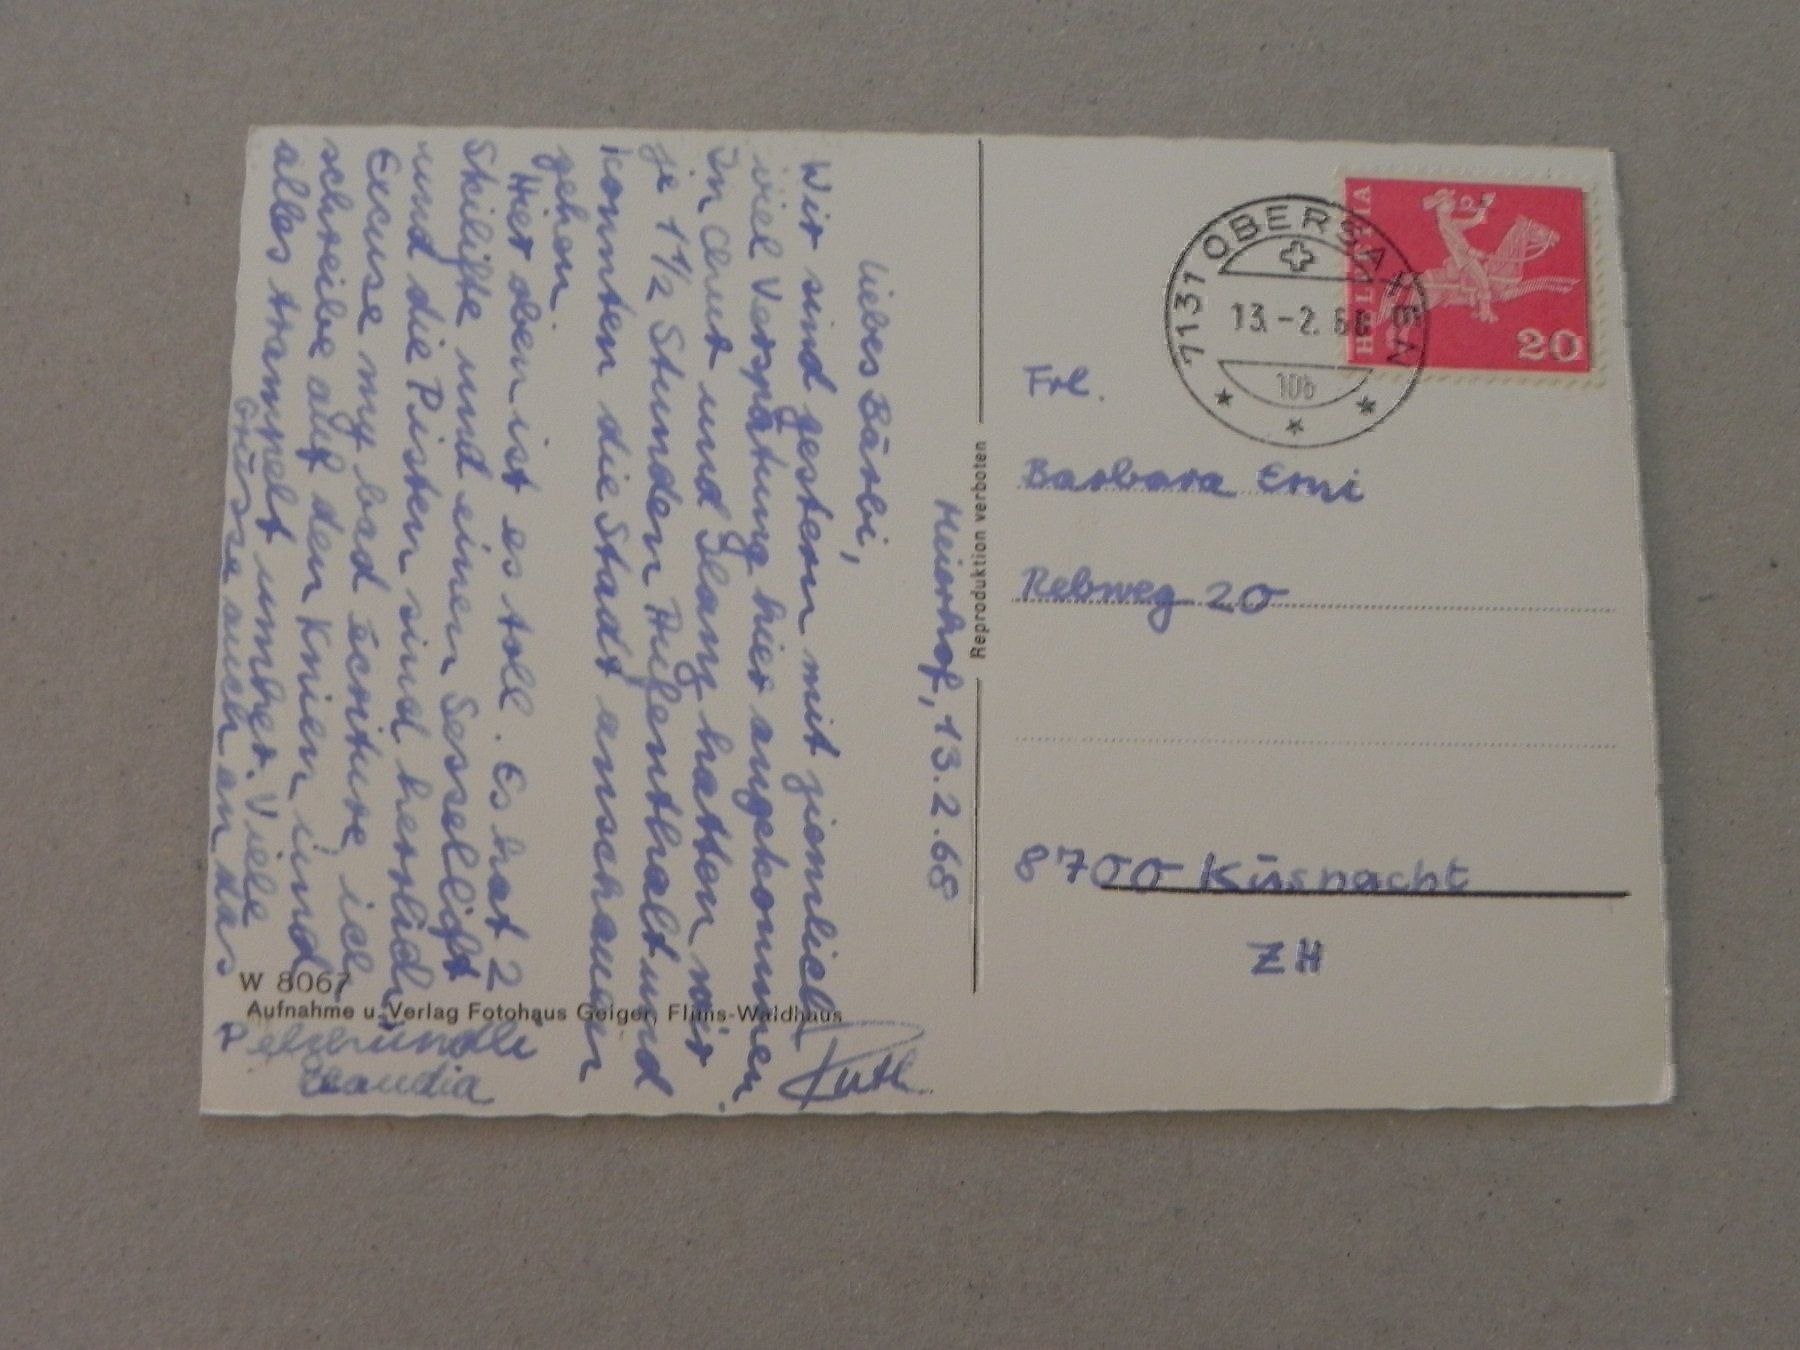 Meierhof, 13.2.68
Liebes Bärbi,
Wir sind gestern mit ziemlich
viel Verspätung hier angekommen.
In Chur und Ilanz hatten wir
je 1 1/2 Stunden Aufenthalt und
konnten die Stadt anschauen
gehen.
Hier oben ist es toll. Es hat 2
Skilifte und einen Sessellift
und die Pisten sind herrlich.
Excuse my bad écriture, ich
schreibe auf den Knien und
alles trampelt umher. Viele
Grüsse auch an das
Claudia
Ruth
W 8067
Aufnahme u. Verlag Fotohaus Geiger, Flims-Waldhaus
Reproduktion verboten
7131 OBERSAXEN
13.-2.68
10b
HELVETIA
20
Frl.
Barbara Erni
Rebweg 20
8700 Küsnacht
ZH